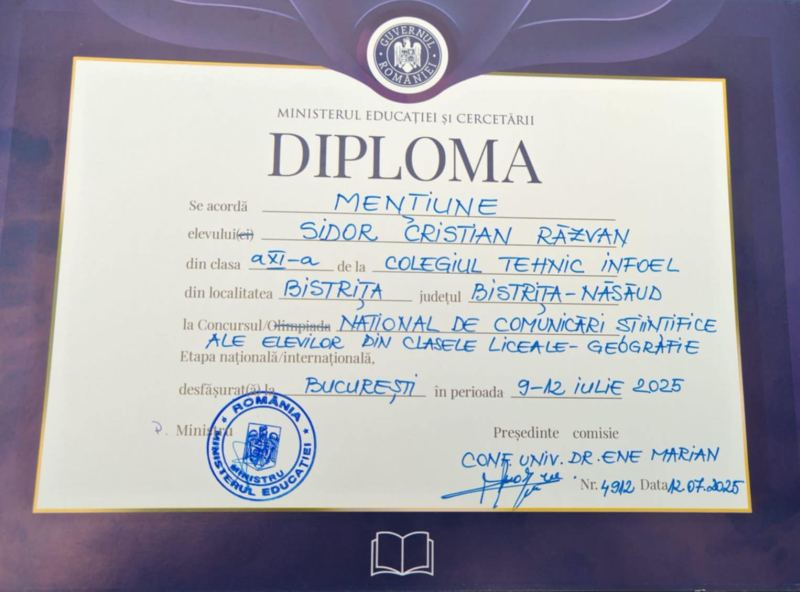 GUVERNUL ROMÂNIEI
MINISTERUL EDUCAȚIEI ȘI CERCETĂRII
DIPLOMA
Se acordă MENȚIUNE
elevului(ei) SIDOR CRISTIAN RĂZVAN
din clasa a XI-a de la COLEGIUL TEHNIC INFOEL
din localitatea BISTRIȚA județul BISTRIȚA-NĂSĂUD
la Concursul/Olimpiada NAȚIONAL DE COMUNICĂRI STIINTIFICE
ALE ELEVILOR DIN CLASELE LICEALE- GEOGRAFIE
Etapa națională/internațională,
desfășurat(ă) la BUCUREȘTI în perioada 9-12 IULIE 2025
P. Ministru
Președinte comisie
CONF. UNIV. DR. ENE MARIAN
Nr. 4912 Data 12.07.2025
ROMÂNIA
MINISTRU
MINISTERUL EDUCAȚIEI